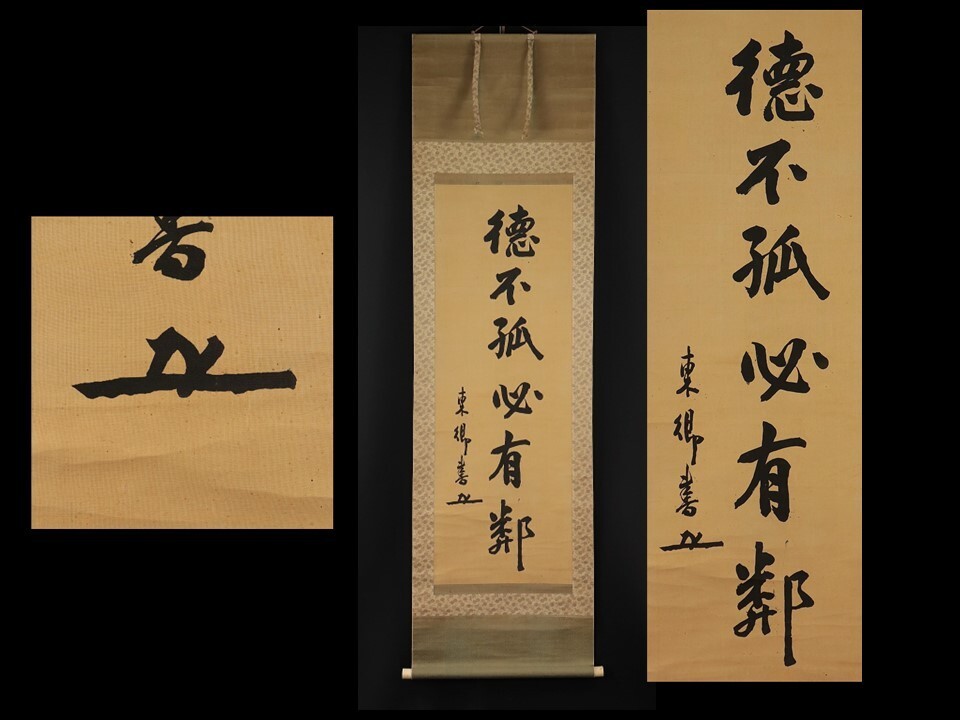 書
德不孤必有鄰
東郷書
德不孤必有鄰
東郷書